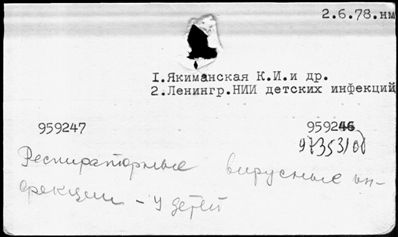 2.6.78.нм
1.Якиманская К.И.и др.
2.Ленингр.НИИ детских инфекций
959247 959246
97353/00
Респираторные вирусные ин-
фекции - у детей